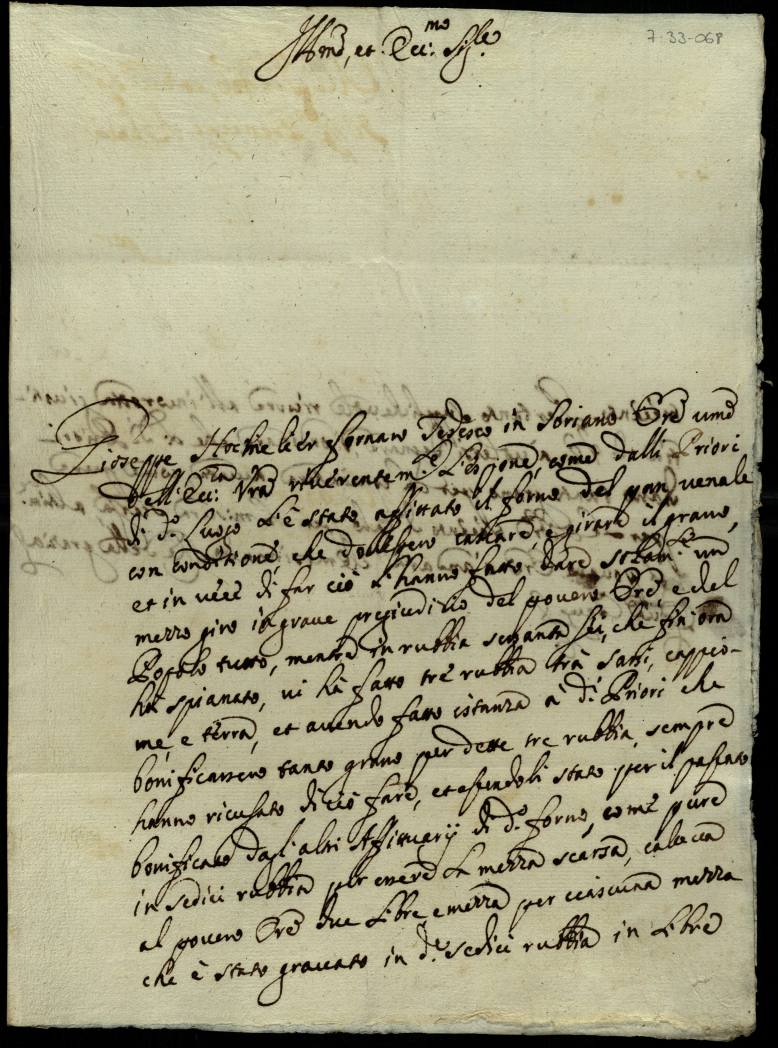 7-33-068
Ill.mo, et Ecc.mo Sig.re
Gioseppe Hochielier fornaro Tedesco in Soriano Ore umo
dell'Ecc: Vra riverentem.te L'espone, come dalli Priori
di d.o Luogo L'è stato affittato il forno del pan venale
con conditione che dovessero cascare, e girare il grano,
et in vece di far ciò L'hanno fatto dare solam.te un
mezzo giro in grave pregiuditio del povero Ore, e del
Popolo tutto, mentre in rubbia sessanta sei, che fin'ora
hà spianato, vi hà fatto tre rubbia trà sassi, cappio-
me, e terra, et avendo fatto istanza à d.i Priori che
bonificassero tanto grano per dette tre rubbia, sempre
hanno ricusato di ciò fare, et essendoli stato per il passato
bonificato dagl'altri Affittuarij di d.o forno, come pure
in sedici rubbia per essere La mezza scarsa, calava
al povero Ore due Libre e mezza per ciascuna mezza
che è stato gravato in d.e sedici rubbia in Libre